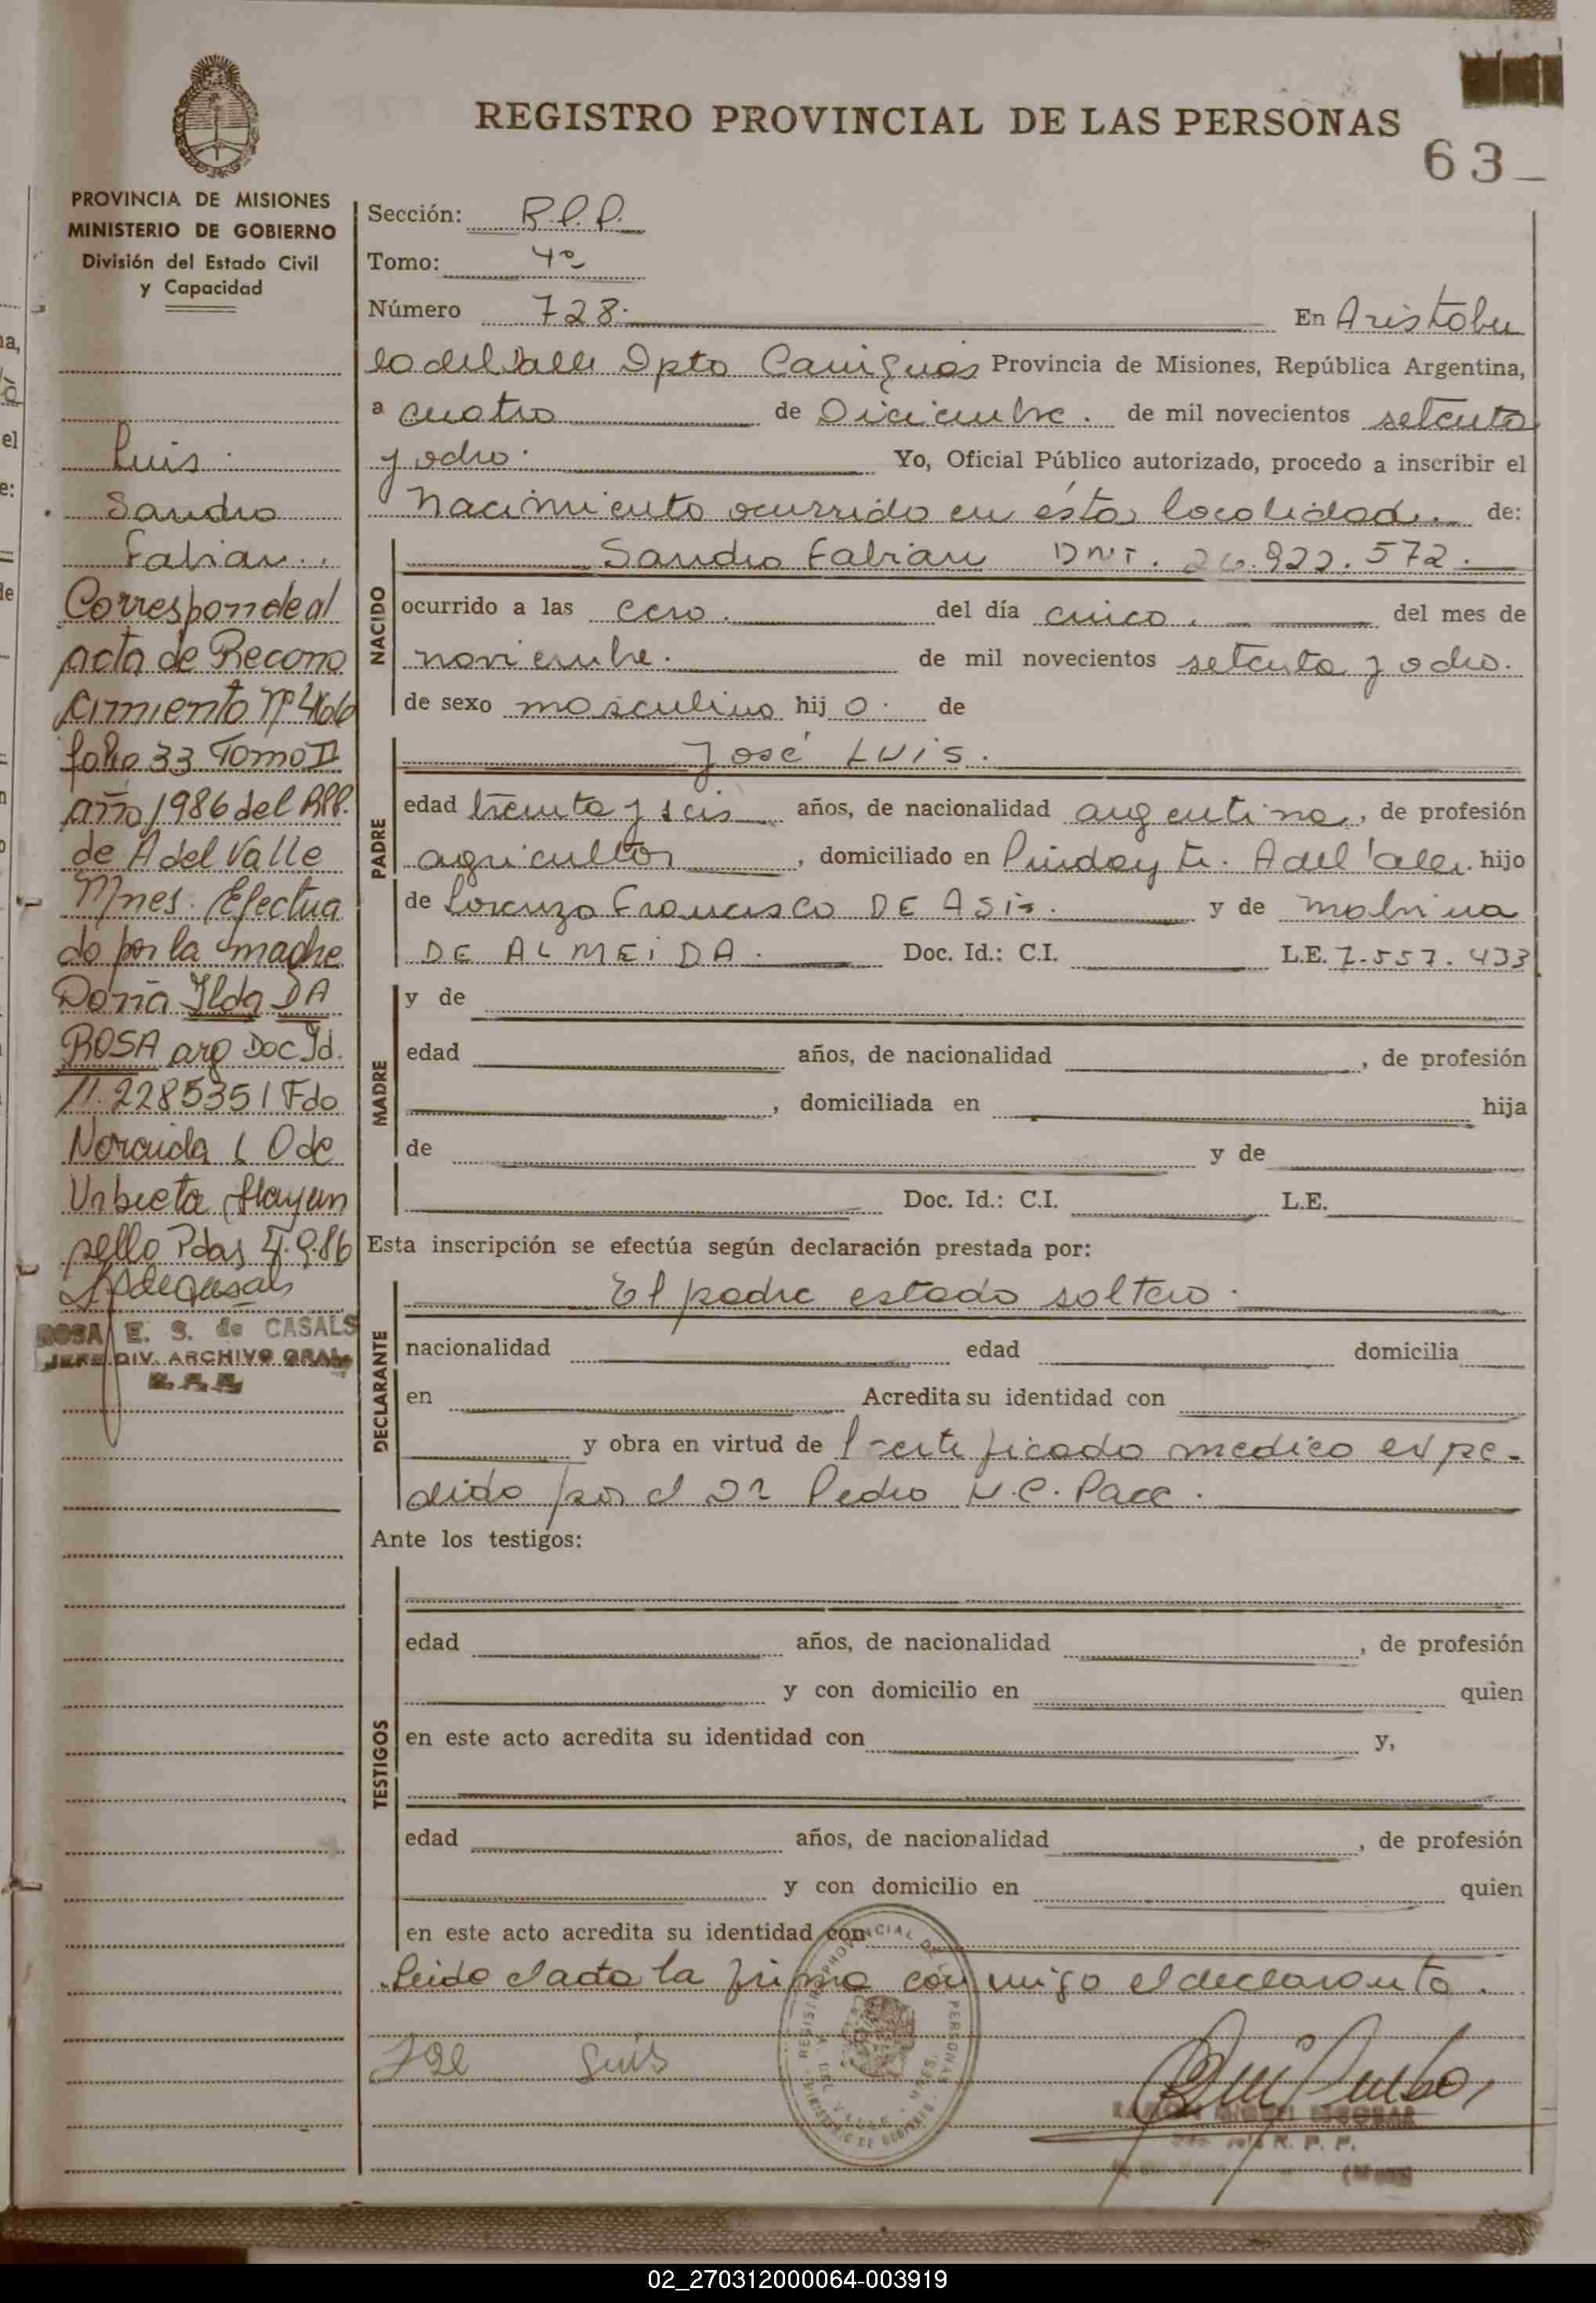 REGISTRO PROVINCIAL DE LAS PERSONAS
63
PROVINCIA DE MISIONES
MINISTERIO DE GOBIERNO
División del Estado Civil
y Capacidad
Luis
Sandro
Fabian
Corresponde al
acta de Recono
cimiento nº 466
folio 33 Tomo II
año 1986 del RPP.
de A del Valle
Mnes. Efectua
do por la madre
Doña Ilda DA
ROSA arg Doc Id.
11.228535 / Fdo
de
Urbieta Hay un
sello Pdas 4.9.86
ROSA E. S. de CASALS
JEFE DIV. ARCHIVO GRAL
Sección: R.P.P.
Tomo: 4º
Número 728. En Aristobu
lo del Valle Dpto Cainguás Provincia de Misiones, República Argentina,
a cuatro de Diciembre. de mil novecientos setenta
y ocho. Yo, Oficial Público autorizado, procedo a inscribir el
Nacimiento ocurrido en ésta localidad. de:
NACIDO
Sandro Fabian DNI. 26.922.572.
ocurrido a las cero. del día cinco. del mes de
noviembre. de mil novecientos setenta y ocho.
de sexo masculino hij o. de
PADRE
José LUIS.
edad treinta y seis años, de nacionalidad argentina, de profesión
agricultor, domiciliado en Pindayti. A del Valle. hijo
de Lorenzo Francisco DE ASIS. y de Malvina
DE ALMEIDA. Doc. Id.: C.I. L.E. 7.557.433
MADRE
y de
edad años, de nacionalidad , de profesión
, domiciliada en hija
de y de
Doc. Id.: C.I. L.E.
Esta inscripción se efectúa según declaración prestada por:
DECLARANTE
El padre estado soltero.
nacionalidad edad domicilia
en Acredita su identidad con
y obra en virtud de Certificado medico expe-
dido por el Dr Pedro H.C. Pace.
Ante los testigos:
TESTIGOS
edad años, de nacionalidad , de profesión
y con domicilio en quien
en este acto acredita su identidad con y,
edad años, de nacionalidad , de profesión
y con domicilio en quien
en este acto acredita su identidad con
Leido el acta la firma conmigo el declarante.
José Luis
R. P. P.
02_270312000064-003919